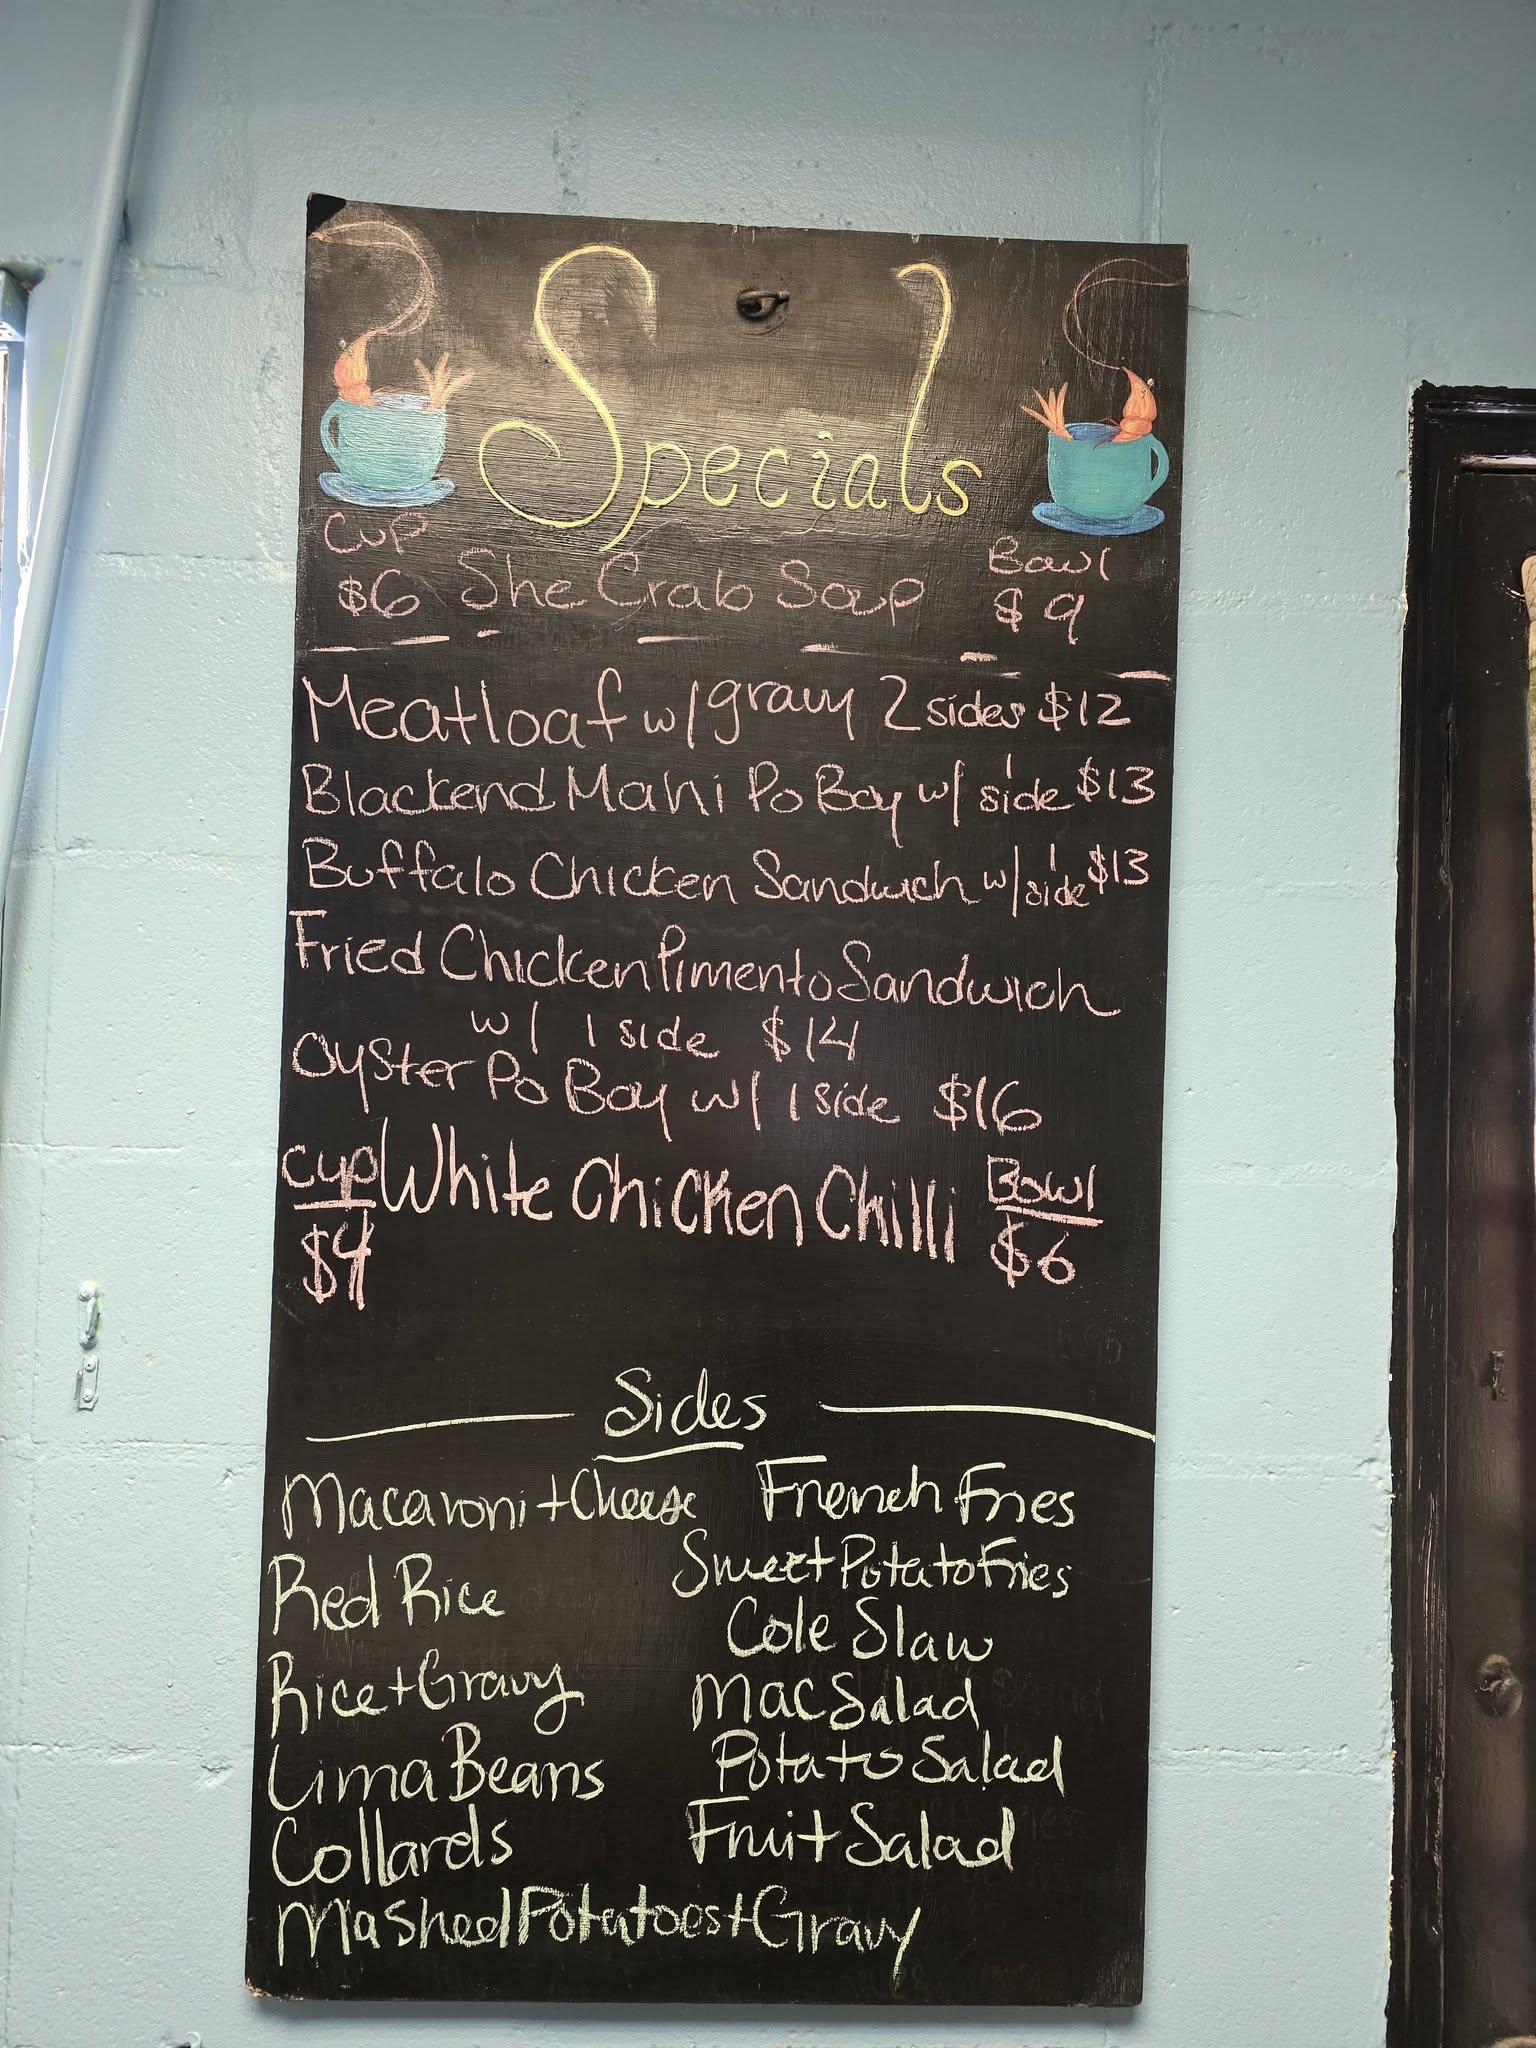 Specials
Cup Bowl
$6 She Crab Soup $9
Meatloaf w/gravy 2 sides $12
Blackend Mahi Po Boy w/ 1 side $13
Buffalo Chicken Sandwich w/ 1 side $13
Fried Chicken Pimento Sandwich
w/ 1 side $14
Oyster Po Boy w/ 1 side $16
Cup White Chicken Chilli Bowl
$4 $6
Sides
Macaroni + Cheese
Red Rice
Rice + Gravy
Lima Beans
Collards
Mashed Potatoes + Gravy
French Fries
Sweet Potato Fries
Cole Slaw
Mac Salad
Potato Salad
Fruit Salad